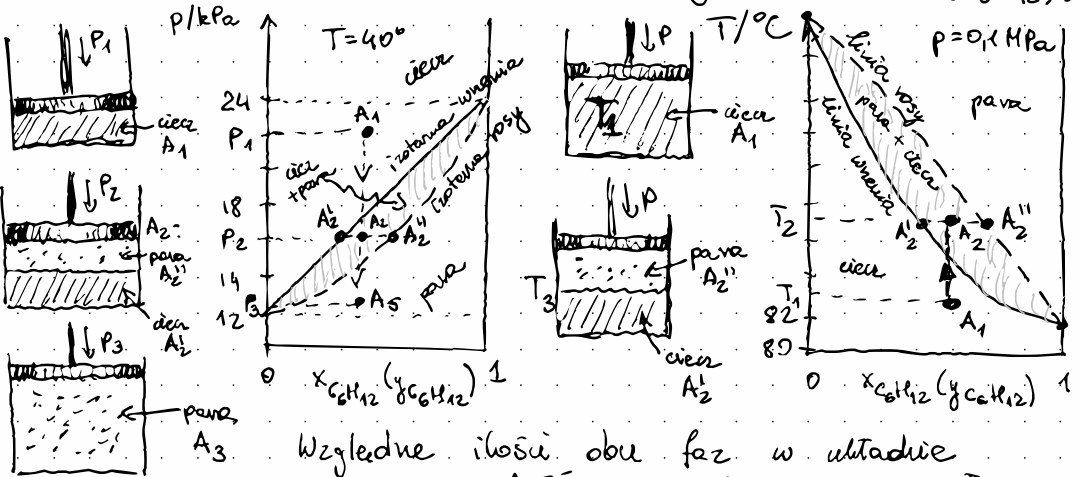 P₁
ciecz
A₁
P₂
A₂
para
A₂''
ciecz
A₂'
P₃
para
A₃
p/kPa
T=40°
24
P₁
18
P₂
14
P₃
12
ciecz
A₁
izoterma wrzenia
izoterma rosy
ciecz
+para
A₂'
A₂
A₂''
para
0
x C₆H₁₂ (y C₆H₁₂)
1
P
T₁
ciecz
A₁
p
T₃
para
A₂''
ciecz
A₂'
T/°C
p=0,1 MPa
linia rosy
para + ciecz
linia wrzenia
para
T₂
A₂'
A₂
A₂''
ciecz
T₁
A₁
82
80
0
x C₆H₁₂ (y C₆H₁₂)
1
Względne ilości obu faz w układzie